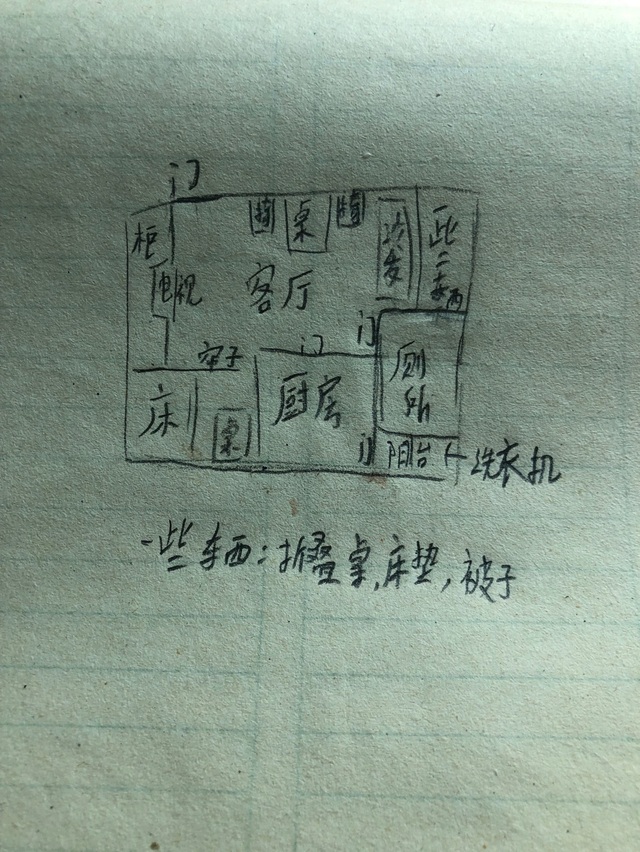 门
柜
桌
沙发
一些东西
电视
客厅
帘子
门
门
厕所
床
桌
厨房
门
阳台
洗衣机
一些东西:折叠桌,床垫,被子